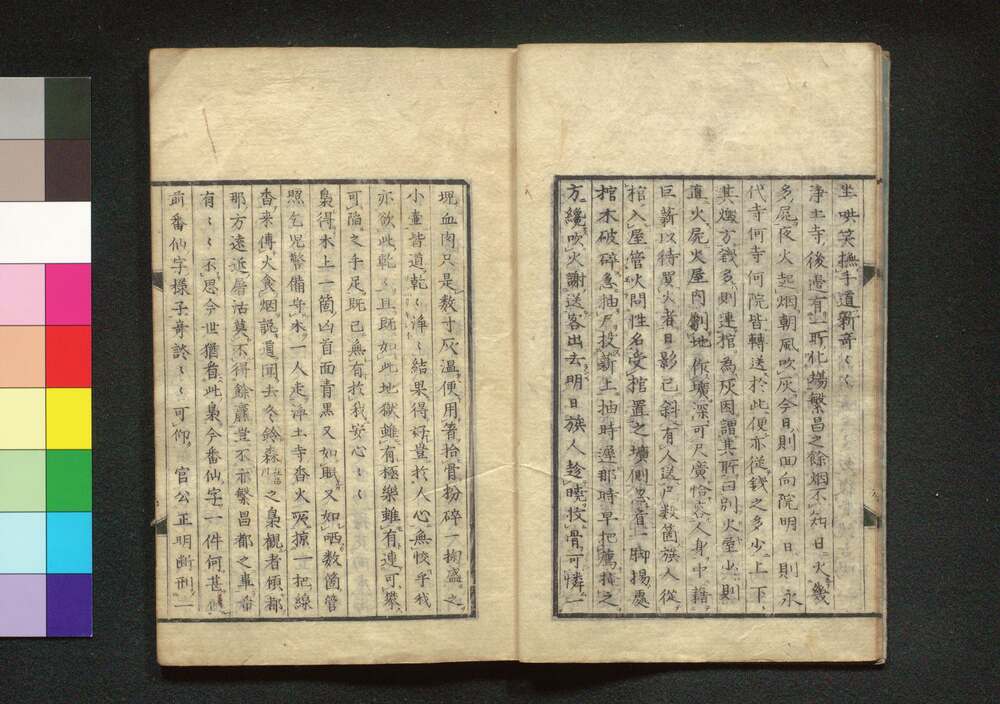 坐哄笑撫手道新奇〻〻
浄土寺後邊有一所化場繁昌之餘烟不知日火幾
多屍夜火起烟朝風吹灰今日則回向院明日則永
代寺何寺何院皆轉送於此便亦從錢之多少上一下
其燬方錢多則連棺為灰因謂其所曰別火屋少則
直火屍火屋内劃地作壙深可尺廣恰容人身中積
巨薪以待買火者日影已斜有人送戸数箇族人從
棺入屋管火問姓名受棺置之壙側 一脚揚處
棺木破碎急抽尸投薪上抽時遲那時早把薦掩之
方纔吹火謝送客出去明日族人趁曉拔骨可憐一
塊血肉只是数寸灰温便用箸拾骨扮碎一掬盛之
小壷皆道乾〻浄〻結果得好豈於人心無恔乎我
亦欲此乾〻且既如此地獄雖有極樂雖有蓮可攀
可陥之手足既已無有於我安心〻〻
梟得木上一箇凶首面青黑又如眠又如哂数箇管
照乞児警備 一人走浄土寺香火 掠一把線
香来傳火食烟説 聞去冬鈴森之梟観者傾都
那方遠近屠沽莫不得餘 豈不亦繁昌都之事希
有〻〻不思今世猶看此梟今番仙字一件何甚
前番仙字様子奇談〻〻可仰官公正明断刑一